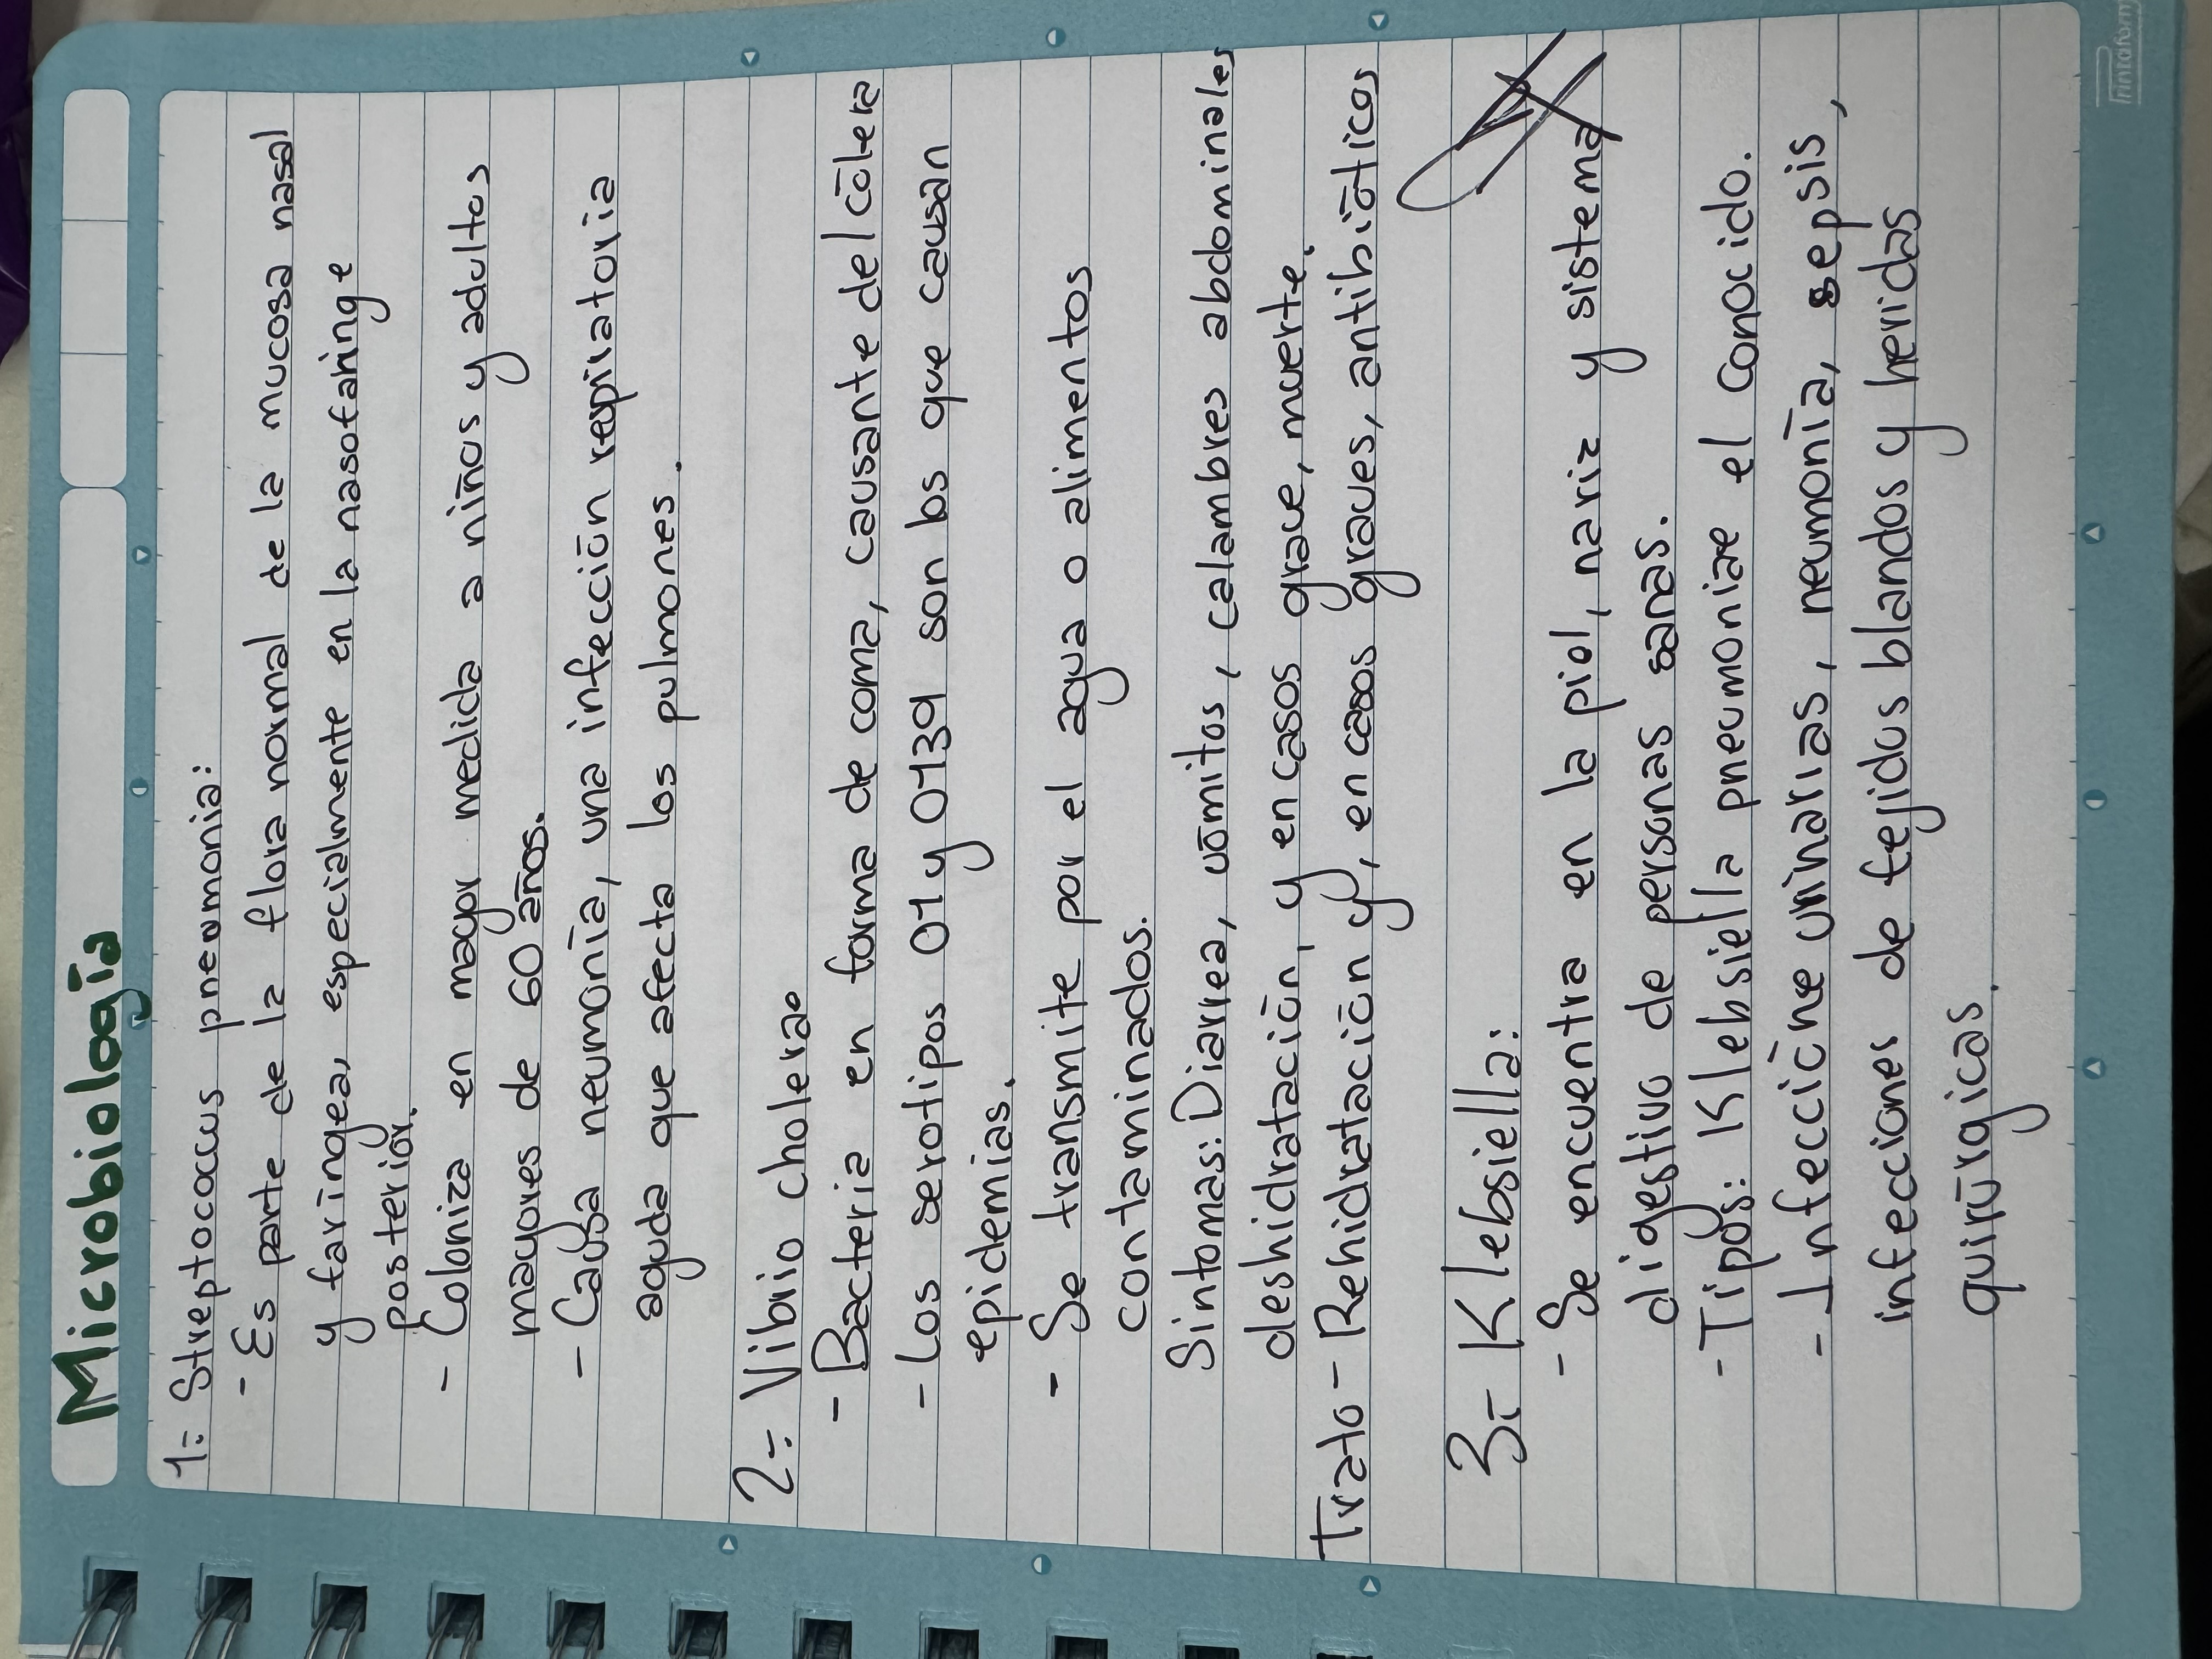 Microbiología
1.- Streptococcus pneumonia:
- Es parte de la flora normal de la mucosa nasal
y faríngea, especialmente en la nasofaringe
posterior.
- Coloniza en mayor medida a niños y adultos
mayores de 60 años.
- Causa neumonía, una infección respiratoria
aguda que afecta los pulmones.
2.- Vibrio cholerae
- Bacteria en forma de coma, causante del cólera
- Los serotipos 01 y 0139 son los que causan
epidemias.
- Se transmite por el agua o alimentos
contaminados.
Sintomas: Diarrea, vómitos, calambres abdominales
deshidratación, y en casos grave, muerte.
Trato - Rehidratación y, en casos graves, antibióticos
3.- Klebsiella:
- Se encuentra en la piel, nariz y sistema
digestivo de personas sanas.
- Tipos: Klebsiella pneumoniae el conocido.
- Infeccióne urinarias, neumonía, sepsis,
infecciones de tejidos blandos y heridas
quirúrgicas.
Printaform